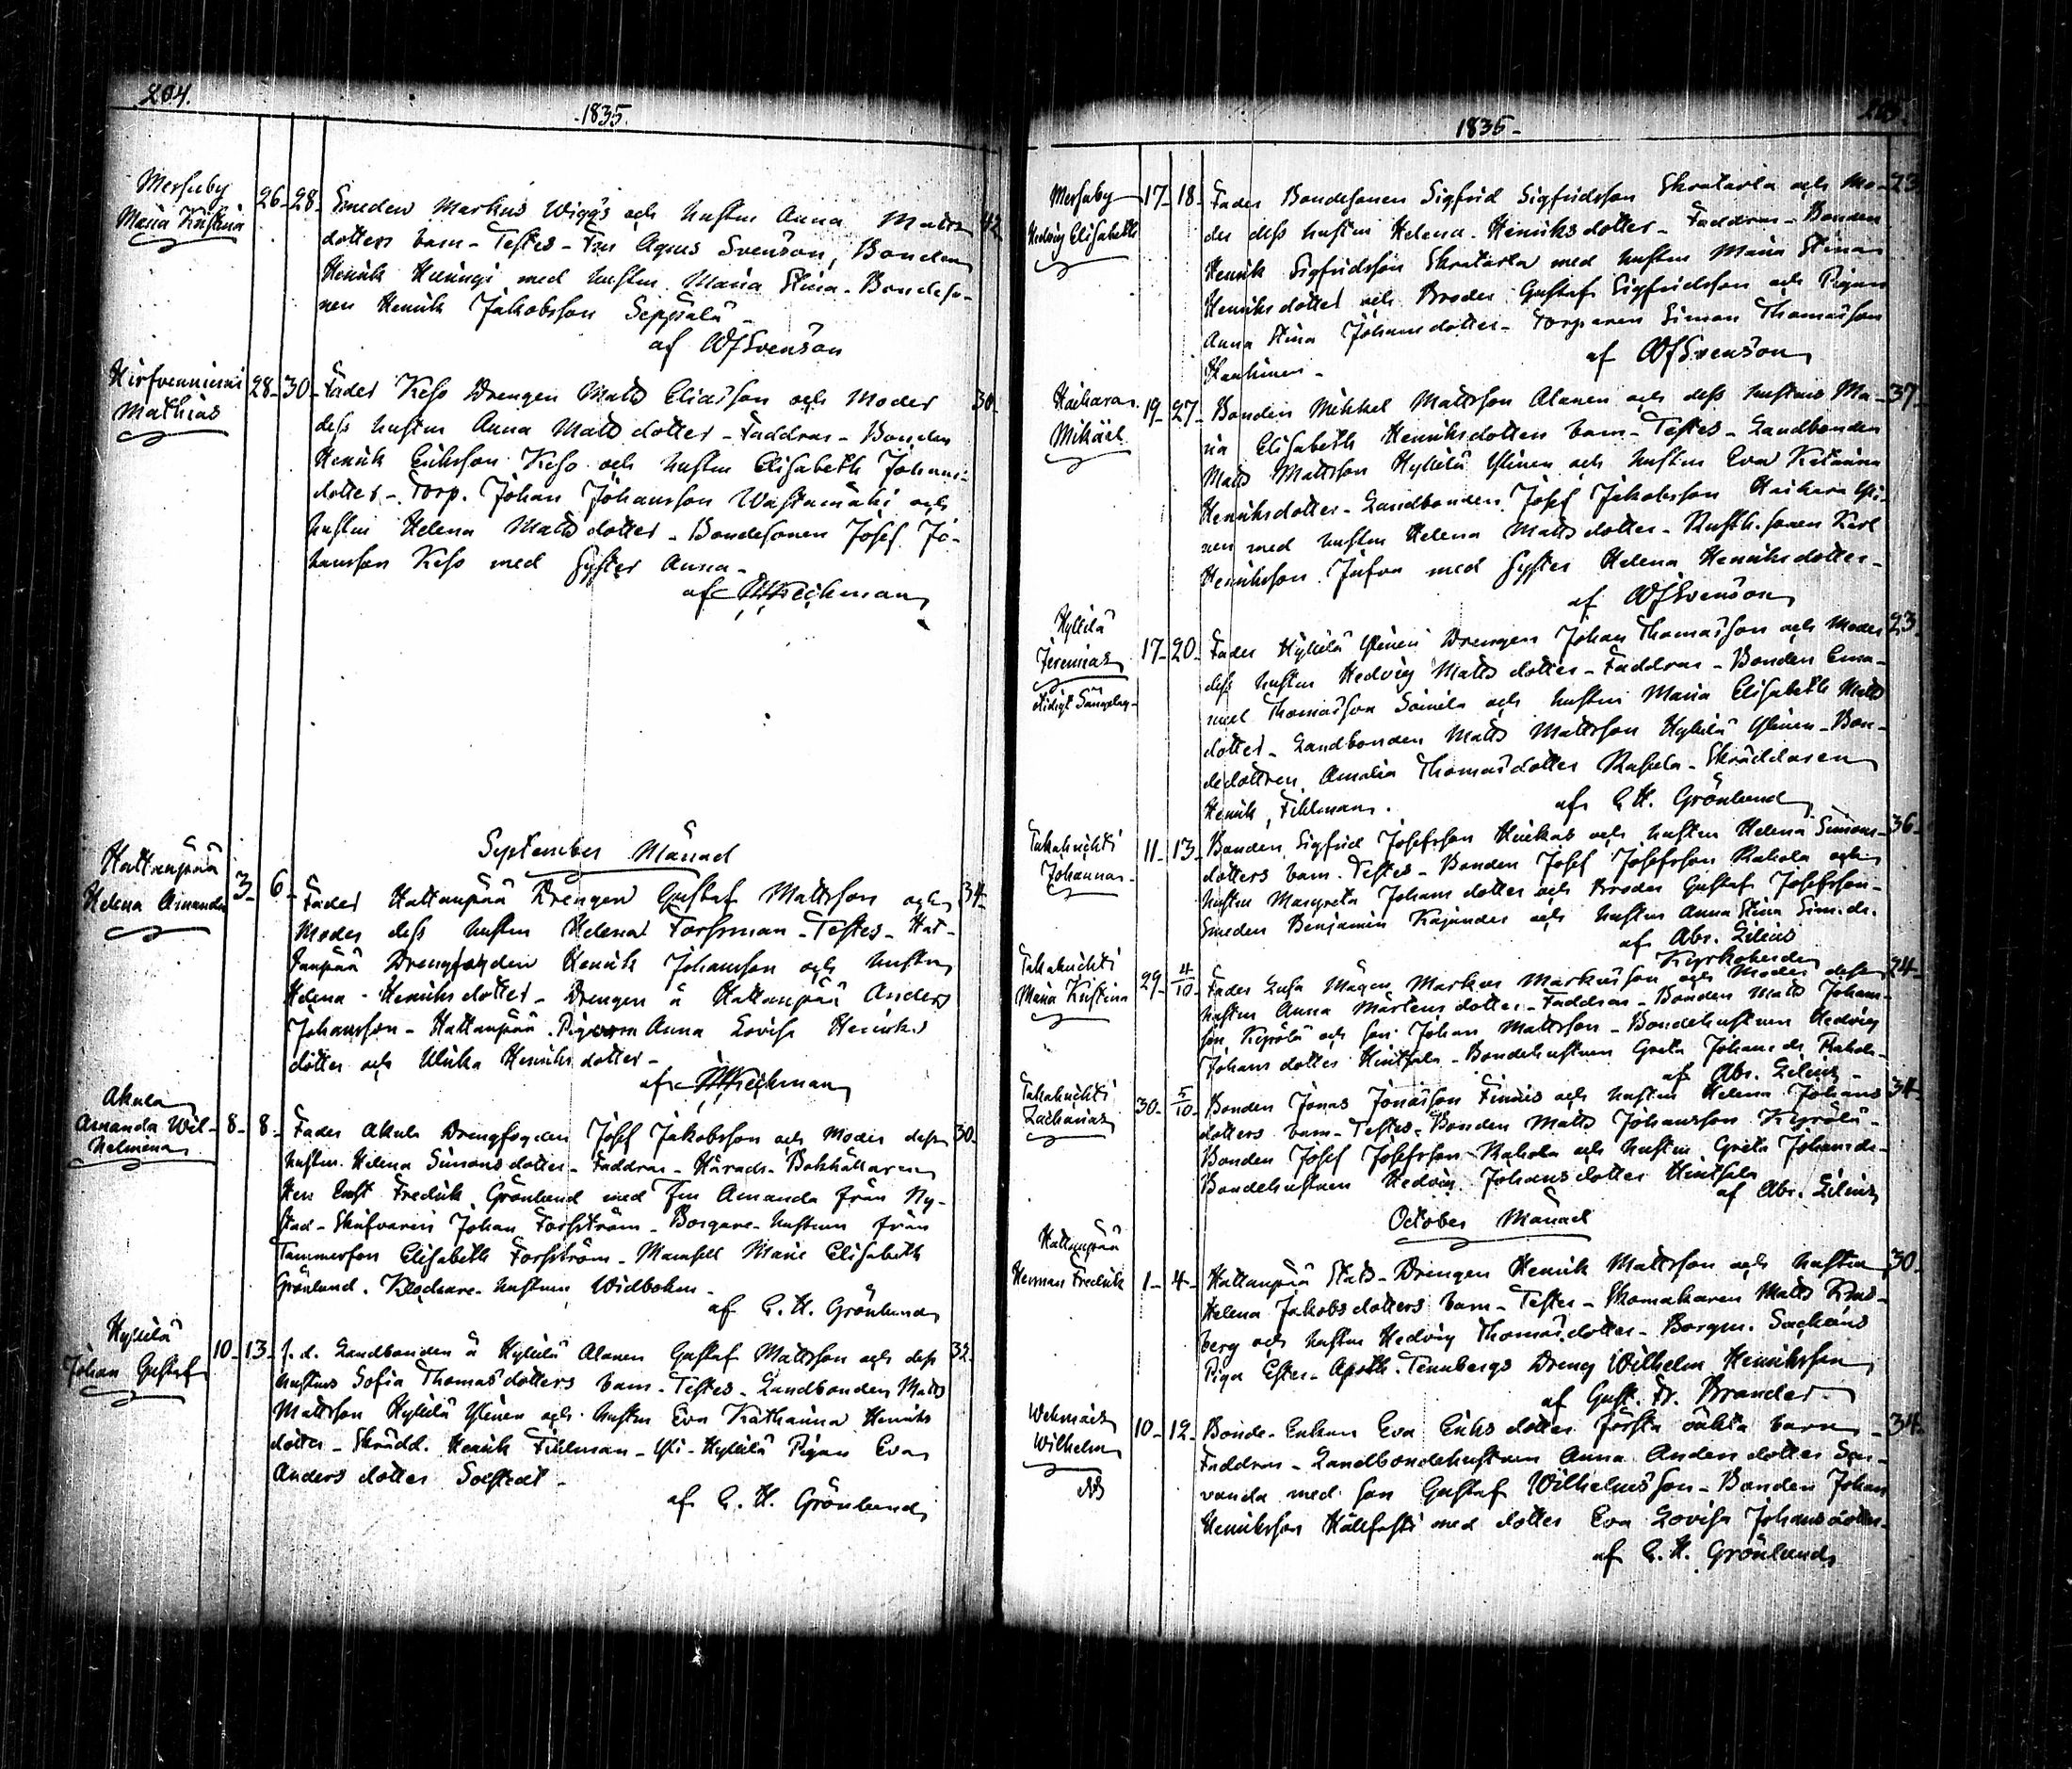 204.
1835.
Mersuby
Maria Kristina
26 - 28 - Smeden Markus Wiggs och hustrun Anna Matts 42
dotters barn - Testes - Fru Agnes Svenson, Bonden
Henrik med hustrun Maria Stina - Bondeso-
nen Henrik Jakobsson Seppälä -
af Svenson
Hirfvenniemi
Mathias
28 - 30 - Fader Keso Drengen Matts Eliasson och Moder 30
dess hustru Anna Matts dotter - Faddrar - Bonden
Henrik Eriksson Keso och hustrun Elisabeth Johans-
dotter - Torp. Johan Johansson Wastamäki och
hustrun Helena Matts dotter - Bondesonen Josef Jo-
hansson Keso med Syster Anna -
af Heickman
September Månad
Hattanpää
Helena Amanda
3 - 6 - Fader Hattanpää Drengen Gustaf Mattsson och 34
Moder dess hustru Helena Forsman - Testes - Hat-
tanpää Drengfogden Henrik Johansson och hustrun
Helena Henriks dotter - Drengen å Hattanpää Anders
Johansson - Hattanpää Pigorna Anna Lovisa Henriks
dotter och Ulrika Henriks dotter -
af Heickman
Akula
Amanda Wil-
helmina
8 - 8 - Fader Akula Drengfogden Josef Jakobsson och Moder dess 30
hustru Helena Simons dotter - Faddrar - Härads-Bokhållaren
Herr Ernst Fredrik Grönlund med Fru Amanda från Ny-
stad - Skarfvaren Johan Forsström - Borgare-hustrun från
Tammerfors Elisabeth Forsström - Mamsell Marie Elisabeth
Grönlund. Klockare-hustrun Widbohm -
af E. H. Grönlund
Hyhilä
Johan Gustaf
10 - 13 - f.d. Landbonden å Hyhilä Alanen Gustaf Mattsson och dess 32
hustrus Sofia Thomas dotters barn - Testes - Landbonden Matts
Mattsson Hyhilä Ylinen och hustrun Eva Katharina Henriks
dotter - Skrädd. Henrik Fihlman - Yli-Hyhilä Pigan Eva
Anders dotter Solstedt -
af E. H. Grönlund
1835 -
Mersuby
Hedvig Elisabeth
17 - 18 - Fader Bondesonen Sigfrid Sigfridsson Skratarla och Mo- 23
der dess hustru Helena Henriks dotter - Faddrar - Bonden
Henrik Sigfridsson Skratarla med hustrun Maria Stina
Henriks dotter och Broder Gustaf Sigfridsson och Pigan
Anna Stina Johans dotter - Torparen Simon Thomasson
af Svenson
Haihara
Mikäel
19 - 27 - Bonden Mikkel Mattsson Alanen och dess hustrus Ma- 37
ria Elisabeth Henriksdotters barn - Testes - Landbonden
Matts Mattsson Hyhilä Ylinen och hustrun Eva Katarina
Henriksdotter - Landbonden Josef Jakobsson Haihara Yli-
nen med hustrun Helena Matts dotter - Rusth.sonen Karl
Henriksson Jufva med Syster Helena Henriksdotter -
af Svenson
Hyhilä
Jeremias
17 - 20 - Fader Hyhilä Ylinen Drengen Johan Thomasson och Moder 23
dess hustru Hedvig Matts dotter - Faddrar - Bonden Ema-
nuel Thomasson Soinila och hustrun Maria Elisabeth Matts
dotter - Landbonden Matts Mattsson Hyhilä Ylinen - Bon-
dedottren Amalia Thomas dotter - Skräddaren
Henrik Fihlman.
af E. H. Grönlund
Takahuhti
Johannes
11 - 13 - Bonden Sigfrid Josefsson Huikas och hustrun Helena Simons- 36
dotters barn. Testes - Bonden Josef Josefsson Rahola och
hustrun Margreta Johans dotter och Broder Gustaf Josefsson -
Smeden Benjamin Kajander och hustrun Anna Stina Sim.dr.
af Abr. Lilius
Kyrkoherde
Takahuhti
Maria Kristina
29 - 4/10 - Fader Mågen Markus Markusson och Moder dess 24
hustru Anna Mårtens dotter - Faddrar - Bonden Matts Johans-
son Kyrölä och son Johan Mattsson - Bondehustrun Hedvig
Johans dotter Hintsala - Bondehustrun Greta Johans dr. Rahola -
af Abr. Lilius -
Takahuhti
Zacharias
30 - 5/10 - Bonden Jonas Jonasson Finnis och hustrun Helena Johans 34
dotters barn - Testes - Bonden Matts Johansson Kyrölä -
Bonden Josef Josefsson Rahola och hustrun Greta Johansdr -
Bondehustrun Hedvig Johans dotter Hintsala
af Abr. Lilius
October Månad
Hattanpää
Herman Fredrik
1 - 4 - Hattanpää Stats-Drengen Henrik Mattsson och hustrun 30
Helena Jakobs dotters barn - Testes - Skomakaren Matts
berg och hustrun Hedvig Thomas dotter - Borgm. Sacklins
Piga Ester - Apoth. Tennbergs Dreng Wilhelm Henriksson
af Gust. Fr. Brander -
Wehmais
Wilhelm
NB
10 - 12 - Bonde-Enkan Eva Eriks dotter första oäkta barn - 34
Faddrar - Landbondehustrun Anna Anders dotter
med son Gustaf Wilhelmsson - Bonden Johan
Henriksson med dotter Eva Lovisa Johansdotter -
af E. H. Grönlund